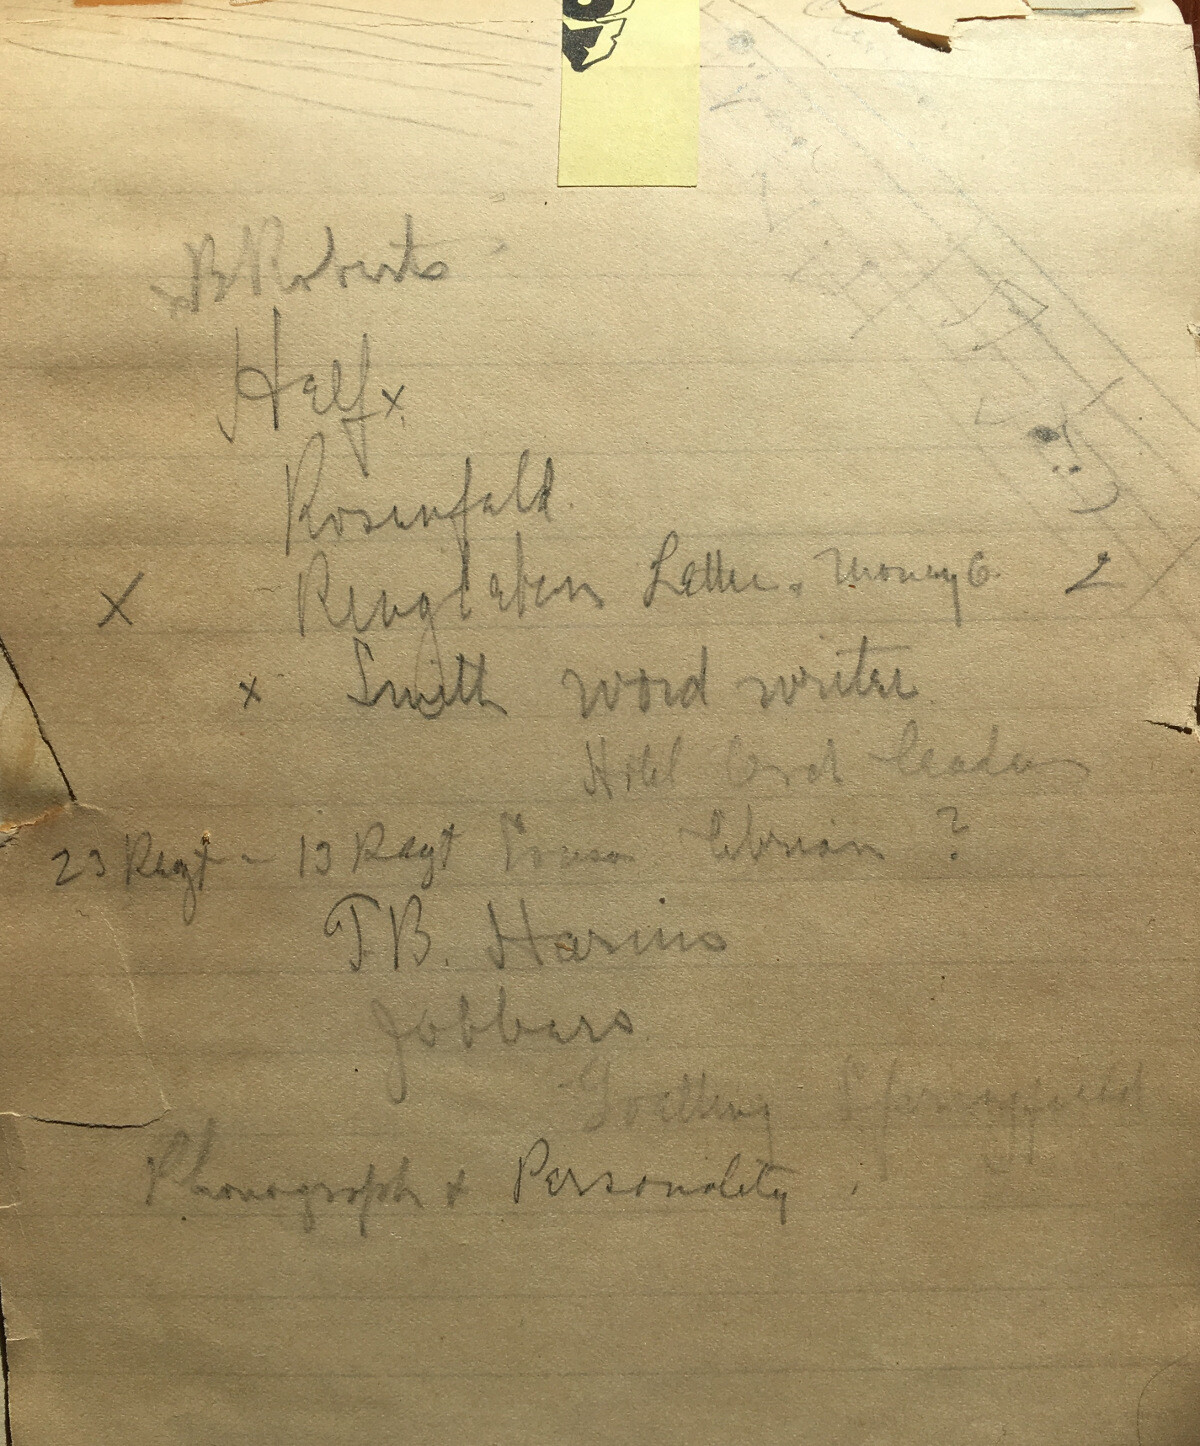 x B Roberts
Half x
Rosenfeld.
X Ringleben Letter. Money O.
x Smith word writer
Hotel Orch Leaders
23 Regt - 13 Regt Sousa librian ?
T.B. Harms
Jobbers
Goetting Springfield
Phonograph & Personality.